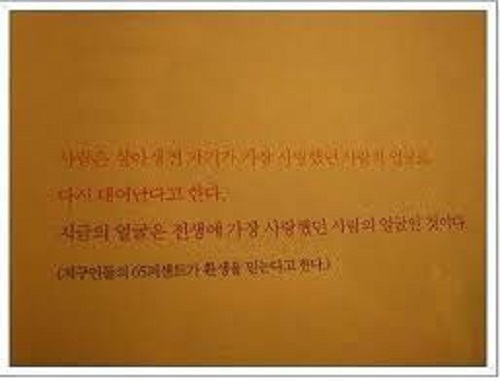 사람은 살아생전 자기가 가장 사랑했던 사람의 얼굴로
다시 태어난다고 한다.
지금의 얼굴은 전생에 가장 사랑했던 사람의 얼굴인 것이다
(지구인들의 65퍼센트가 환생을 믿는다고 한다.)